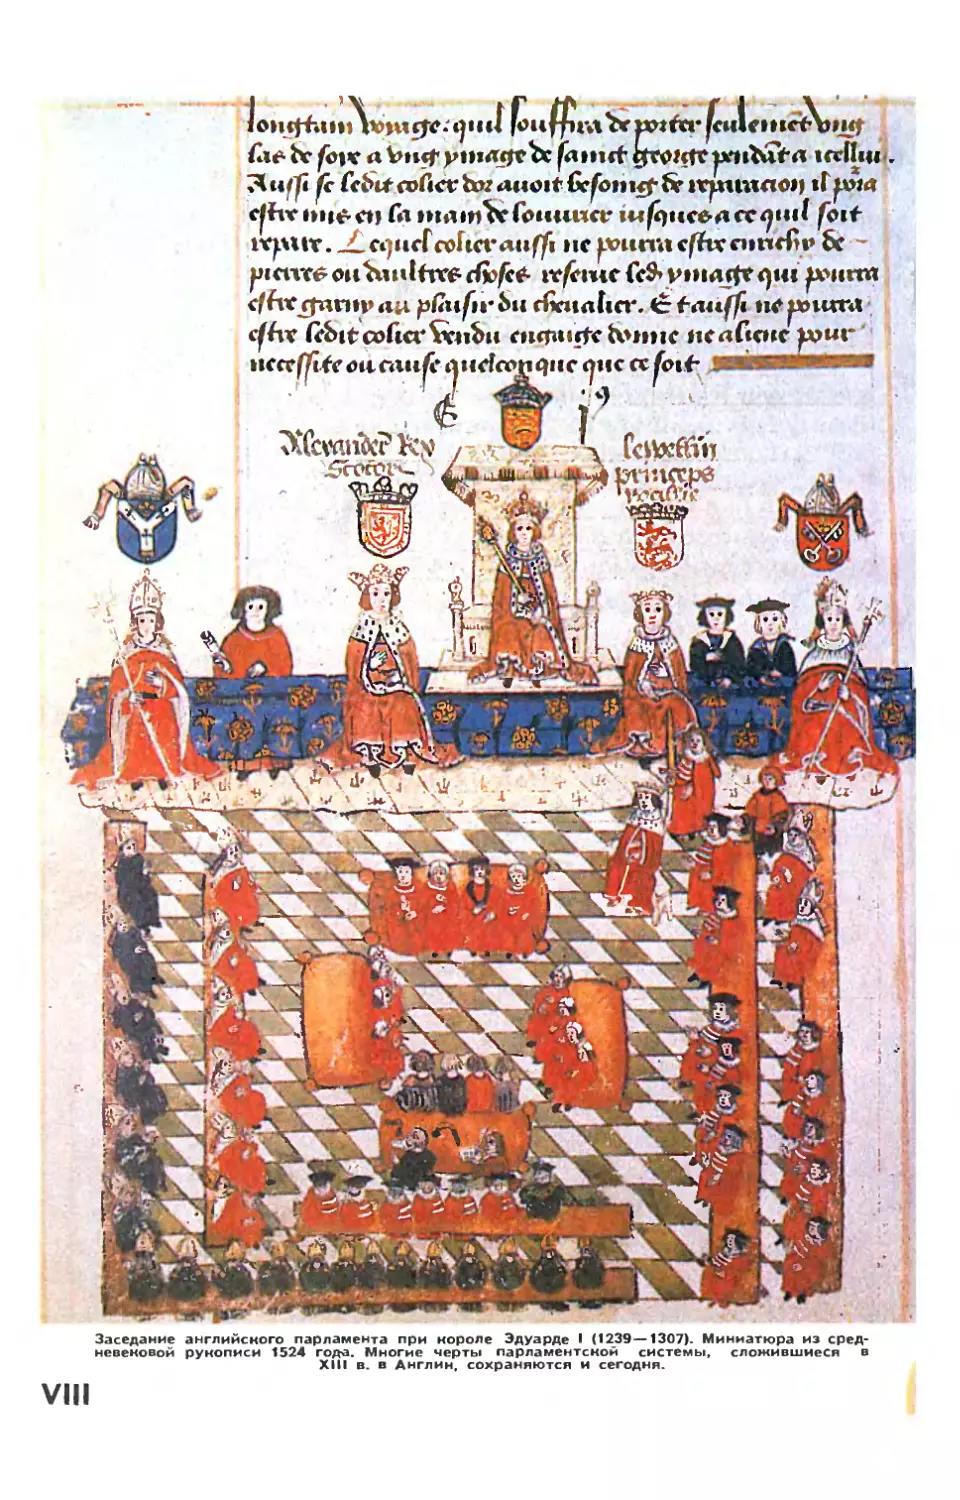 longtain voyage: quil souffira de porter seulement vng
las de soye a vng ymage de sainct george pendāt a icellui.
Aussi se ledit colier dor auoit besoing de reparacion il pora
estre mis en la main de louurier iusques a ce quil soit
repare. Lequel colier aussi ne pourra estre enrichy de
pierres ou daultres choses reserue led ymage qui pourra
estre garny au plaisir du cheualier. Et aussi ne pourra
estre ledit colier vendu engaige donne ne aliene pour
necessite ou cause quelconque que ce soit
E
Alexander Rex
Scotor
Lewellin
princeps
Заседание английского парламента при короле Эдуарде I (1239—1307). Миниатюра из сред-
невековой рукописи 1524 года. Многие черты парламентской системы, сложившиеся в
XIII в. в Англии, сохраняются и сегодня.
VIII